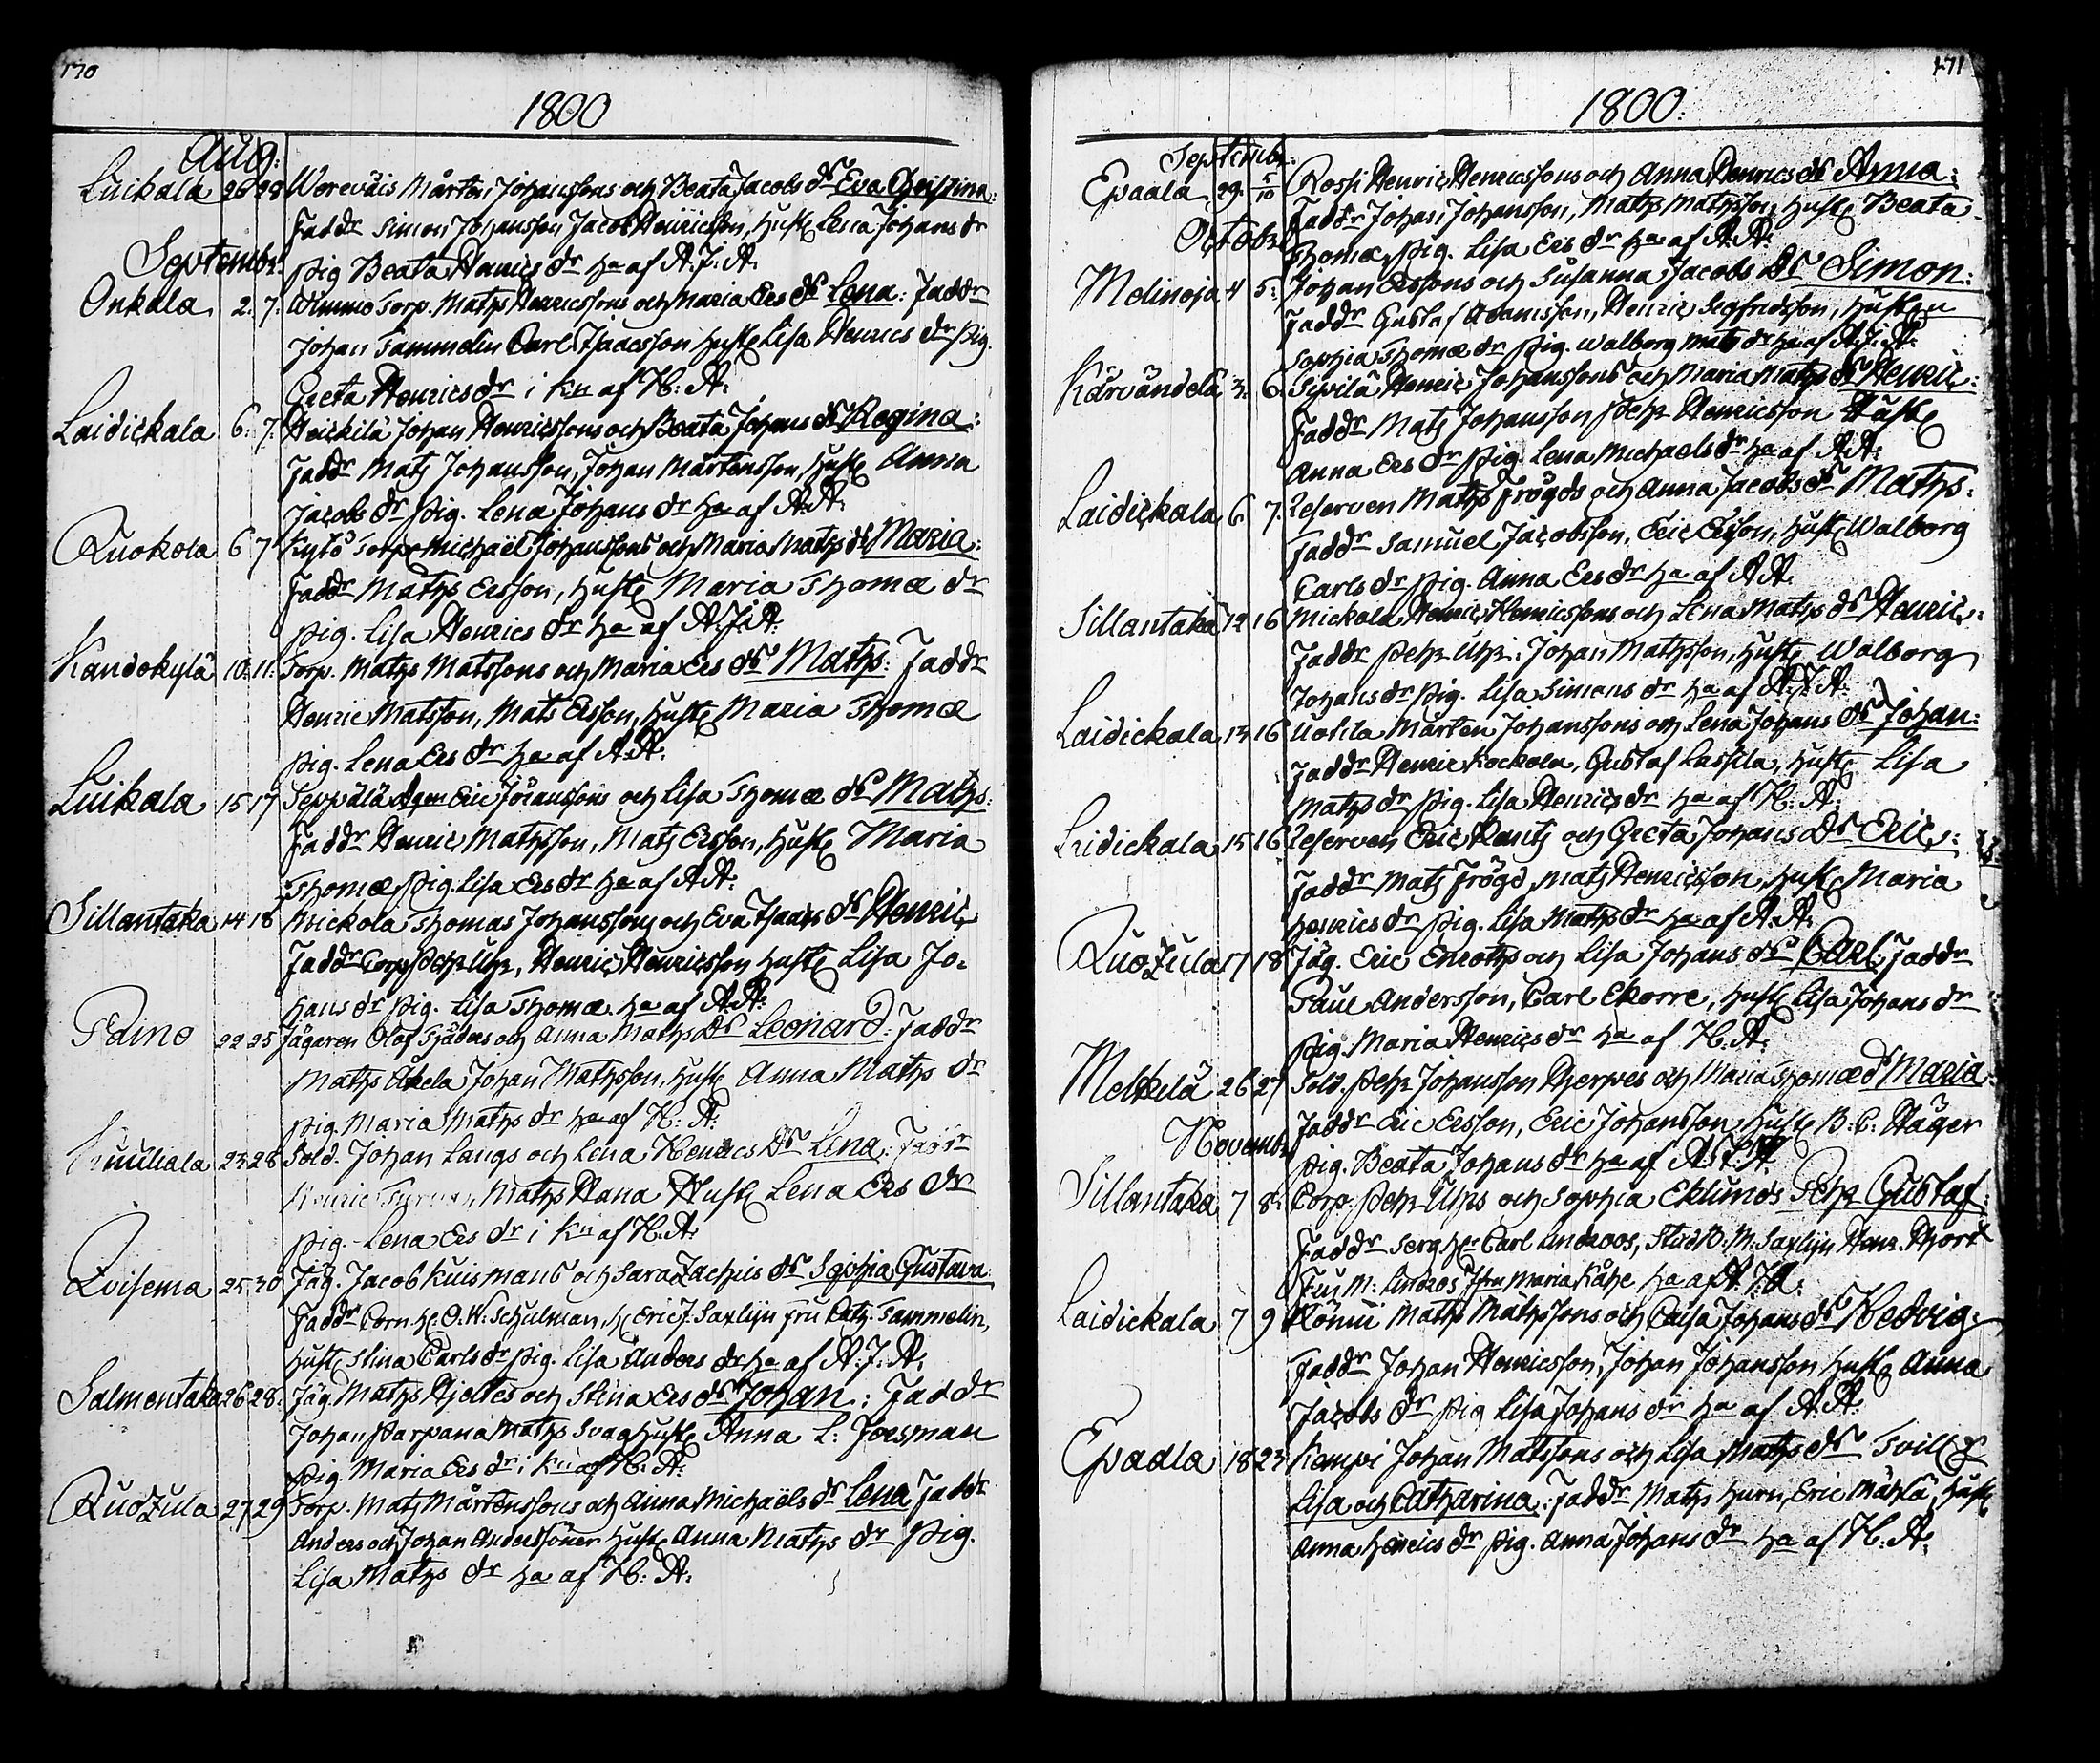 170
1800
Aug:
Luikala 26 28 Woreväis Mårten Johanssons och Beata Jacobs dr Eva Christina:
Faddr Simon Johansson Jacob Henricsson, Hust Lena Johans dr
Septembr: pig Beata Henrics dr ha af A. J. A:
Onkala 2. 7. Torp. Maths Henricssons och Maria Ers dr Lena: Faddr
Johan Tammelin Carl Isaacsson Hust Lisa Henrics dr pig.
Greta Henrics dr i kn af H: A:
Laidickala 6. 7. Heickilä Johan Henricssons och Beata Johans dr Regina:
Faddr Mats Johansson, Johan Mårtensson, Hust Anna
Jacobs dr pig. Lena Johans dr ha af A: A:
Ruokola 6 7 Kylö Torp Michaël Johanssons och Maria Maths dr Maria:
Faddr Maths Ersson, Hust Maria Thomæ dr
pig. Lisa Henrics dr ha af A. J. A:
Kandokylä 10. 11. Torp. Maths Matssons och Maria Ers dr Maths: Faddr
Henric Matsson, Mats Ersson, Hust Maria Thomæ
pig. Lena Ers dr ha af A: A:
Luikala 15 17 Seppälä Eric Johanssons och Lisa Thomæ dr Maths:
Faddr Henric Mathsson, Mats Ersson, Hust Maria
Thomæ pig. Lisa Ers dr ha af A A:
Sillantaka 14 18 Mickola Thomas Johanssons och Eva Isaacs dr Henric
Faddr Corp Pehr Uhr, Henric Henricsson Hust Lisa Jo-
hans dr pig. Lisa Thomæ ha af A: A:
Paino 22 25 Jägaren Olof Tjäders och Anna Maths dr Leonard: Faddr
Maths Åkela Johan Mathsson, Hust Anna Maths dr
pig Maria Maths dr ha af H: A:
23 28 Sold. Johan Langs och Lena Henrics dr Lena: Faddr
Henric Maths Hana Hust Lena Ers dr
pig. Lena Ers dr i kn af H: A:
25 30 Jäg. Jacob Kuismans och Sara Zachris dr Sophia Gustava:
Faddr Corn H. O. W. Schulman, H Eric J. Saxlijn Fru Cath. Tammelin,
Hust Stina Carls dr pig. Lisa Anders dr ha af A. J. A:
Salmentaka 26 28. Jäg. Maths Hjeltes och Stina Ers dr Johan: Faddr
Johan Parpana Maths Svag Hust Anna L: Forsman
pig. Maria Ers dr i kn af H: A:
27 29 Torp. Mats Mårtenssons och Anna Michaëls dr Lena Faddr
Anders och Johan Anderssöner Hust Anna Maths dr pig.
Lisa Maths dr ha af H: A:
171
1800:
Septembr:
Epaala 29. 5/10 Rossi Henric Henricssons och Anna Henrics dr Anna:
Faddr Johan Johansson, Maths Mathsson, Hust Beata
Octobr: Thomæ, pig. Lisa Ers dr ha af A: A:
Melinoja 4 5: Johan Erssons och Susanna Jacobs dr Simon:
Faddr Gustaf Adamsson, Henric Segfridsson, Hust
Sophia Thomæ dr pig. Walborg Mats dr ha af A. J. A:
Kärvändelä 3. 6. Sipilä Henric Johanssons och Maria Maths dr Henric:
Faddr Mats Johansson Pehr Henricsson Hust
Anna Ers dr pig. Lena Michaels dr ha af A: A:
Laidickala 6 7. Reserven Maths Frögds och Anna Jacobs dr Maths:
Faddr Samuel Jacobsson, Eric Ersson, Hust Walborg
Carls dr pig. Anna Ers dr ha af A A.
Sillantaka 12 16 Mickola Henric Henricssons och Lena Maths dr Henric:
Faddr Pehr Uhr: Johan Mathsson, Hust Walborg
Johans dr pig. Lisa Simons dr ha af A. J. A:
Laidickala 13 16 Uotila Mårten Johanssons och Lena Johans dr Johan:
Faddr Henric Kockola, Gustaf Lassila, Hust Lisa
Maths dr pig. Lisa Henrics dr ha af H: A:
Laidickala 15 16 Reserven Eric Rents och Greta Johans dr Eric:
Faddr Mats Frögd, Mats Henricsson, Hust Maria
Henrics dr pig. Lisa Maths dr ha af A: A:
17 18 Jäg. Eric Enroths och Lisa Johans dr Carl: Faddr
Paul Andersson, Carl Ekorre, Hust Lisa Johans dr
pig. Maria Henrics dr ha af H: A:
Melkelä 26 27 Sold. Pehr Johansson Hjerpes och Maria Thomæ dr Maria:
Faddr Eric Ersson, Eric Johansson Hust B: C: Häger
Novembr pig. Beata Johans dr ha af A. J. A:
Sillantaka 7 8: Corp. Pehr Uhrs och Sophia Eklunds Pehr Gustaf:
Faddr Serg Hr Carl Lindroos, Stud B: M: Saxlijn Henr. Hjort
Fru M: Lindros Jfru Maria Kåhe ha af A. J. A:
Laidickala 7 9 Römü Maths Mathssons och Caisa Johans dr Hedvig:
Faddr Johan Henricsson, Johan Johansson Hust Anna
Jacobs dr pig Lisa Johans dr ha af A: A:
Epaala 18 23 Kempi Johan Matssons och Lisa Maths dr Tvill:
Lisa och Catharina: Faddr Maths Hurn, Eric Mäkylä, Hust
Anna Henrics dr pig. Anna Johans dr ha af H: A: